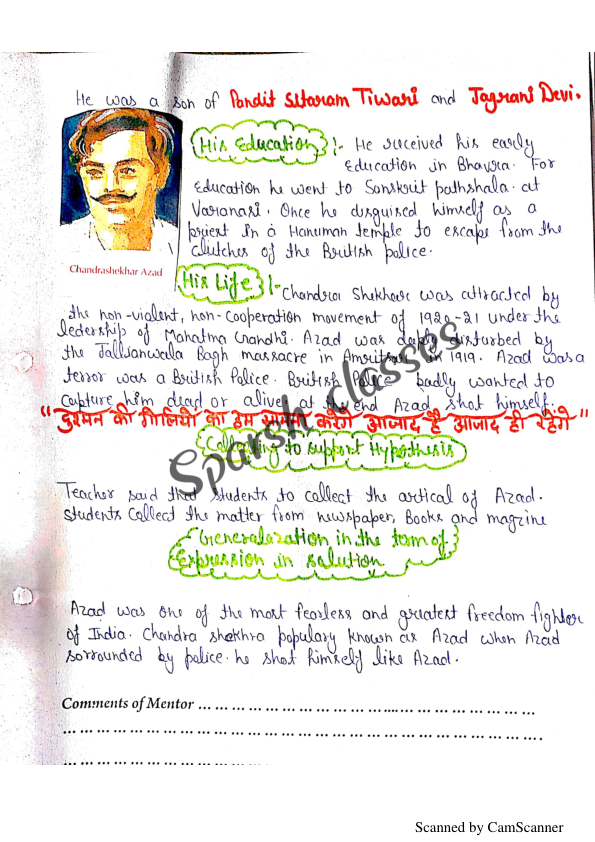 He was a son of Pandit Sitaram Tiwari and Jagrani Devi.
His Education :- He received his early
Education in Bhavra. For
Education he went to Sanskrit pathshala. at
Varanasi. Once he disguised himself as a
priest In a Hanuman temple to escape from the
clutches of the British police.
Chandrashekhar Azad
His Life :- Chandra Shekhar was attracted by
the non-violent, non-cooperation movement of 1920-21 under the
ledership of Mahatma Gandhi. Azad was deeply disturbed by
the Jallianwala Bagh massacre in Amritsar in 1919. Azad was a
terror was a British Police. British Police badly wanted to
capture him dead or alive at the end Azad shot himself.
"दुश्मन की गोलियो का हम सामना करेंगे आजाद है आजाद ही रहेंगे"
to support Hypothesis
Sparsh classes
Teacher said that students to collect the artical of Azad.
students collect the matter from newspaper, Books and magzine
Generalazation in the term of
Expression in salution
Azad was one of the most fearless and greatest freedom fighter
of India. Chandra shekhra populary known as Azad when Azad
sorrounded by police. he shot himself like Azad.
Comments of Mentor
Scanned by CamScanner